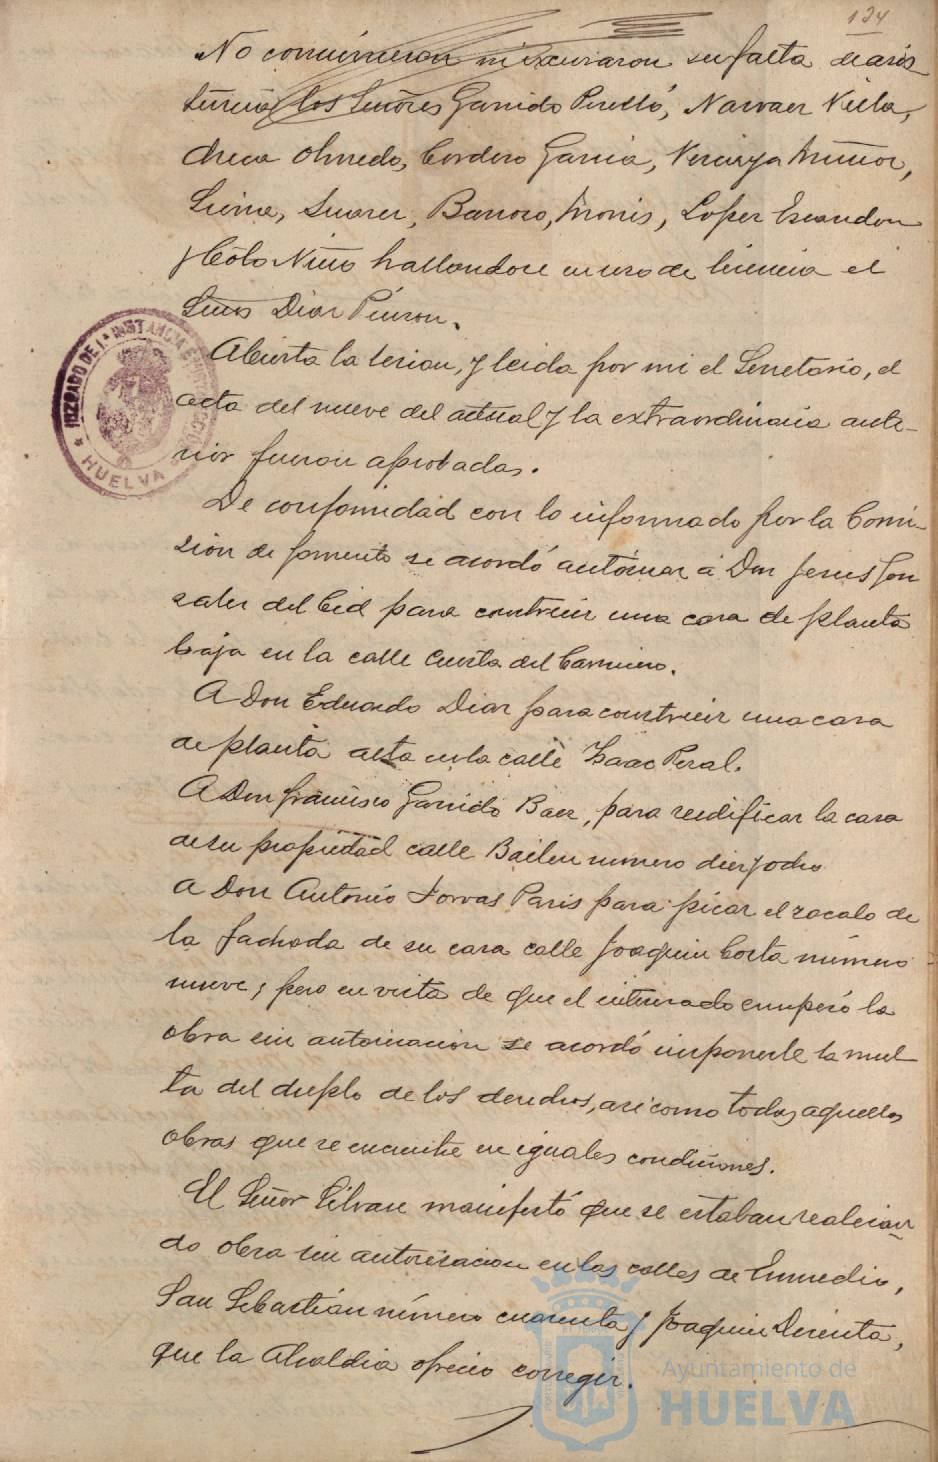 134
No concurrieron ni excusaron su falta de asis-
tencia los Señores Garrido Perelló, Narvaez Villa,
checa Olmedo, Cordero Garcia, Vizcaya Muñoz,
Sierra, Suarez, Barroso, Monis, Lopez Escandon
y Coto Niño hallandose en uso de licencia el
Señor Diaz Pinzon.
Abierta la sesion, y leida por mi el Secretario, el
acta del nueve del actual y la extraordinaria ante-
rior fueron aprobadas.
De conformidad con lo informado por la Comi-
sion de fomento se acordó autorizar á Don Jesus Gon
zalez del Cid para construir una casa de planta
baja en la calle Cuesta del Carnicero.
A Don Eduardo Diaz para construir una casa
de planta alta en la calle Isaac Peral.
A Don Francisco Garrido Baez, para reedificar la casa
de su propiedad calle Bailen numero diez y ocho
A Don Antonio Paris para picar el zocalo de
la fachada de su casa calle Joaquin Costa número
nueve; pero en vista de que el interesado empezó la
obra sin autorizacion se acordó imponerle la mul-
ta del duplo de los derechos, asi como todas aquellas
obras que se encuentre en iguales condiciones.
El Señor Silvan manifestó que se estaban realizan-
do obra sin autorizacion en las calles de Enmedio,
San Sebastián número cuarenta y Joaquin Dicenta,
que la Alcaldia ofrecio corregir.
JUZGADO DE 1ª INSTANCIA E INSTRUCCION
HUELVA
Ayuntamiento de
HUELVA